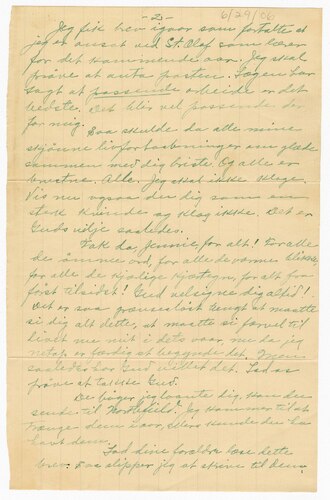 -2-
6/29/06
Jeg fik brev igaar som fortalte at
jeg er ansat ved St. Olaf som lærer
for det kommende aar. Jeg skal
prøve at anta posten. Lægen har
sagt at passende arbeide er det
bedste. Det blir vel passende der
for mig.
Saa skulde da alle mine
skjønne livsforhaabninger om glæde
sammen med dig briste. Og alle er
brustne. Alle. Jeg skal ikke klage.
Vis nu ogsaa du dig som en
sterk kvinde og klag ikke. Det er
Guds vilje saaledes.
Tak da, Jennie, for alt! For alle
de ømme ord, for alle de varme blikke,
for alle de kjærlige kjærtegn, for alt fra
først til sidst! Gud velsigne dig altid!
Det er saa grænseløst tungt at maatte
si dig alt dette, at maatte si farvel til
livet med mit i dets vaar, nu da jeg
netop er færdig at begynde det. Men
saaledes har Gud villet det. Lad os
prøve at takke Gud.
De bøger jeg laante dig, kan du
sende til Northfield. Jeg kommer til at
trænge dem iaar, ellers kunde du ha
havt dem.
Lad dine forældre læse dette
brev, saa slipper jeg at skrive til dem.